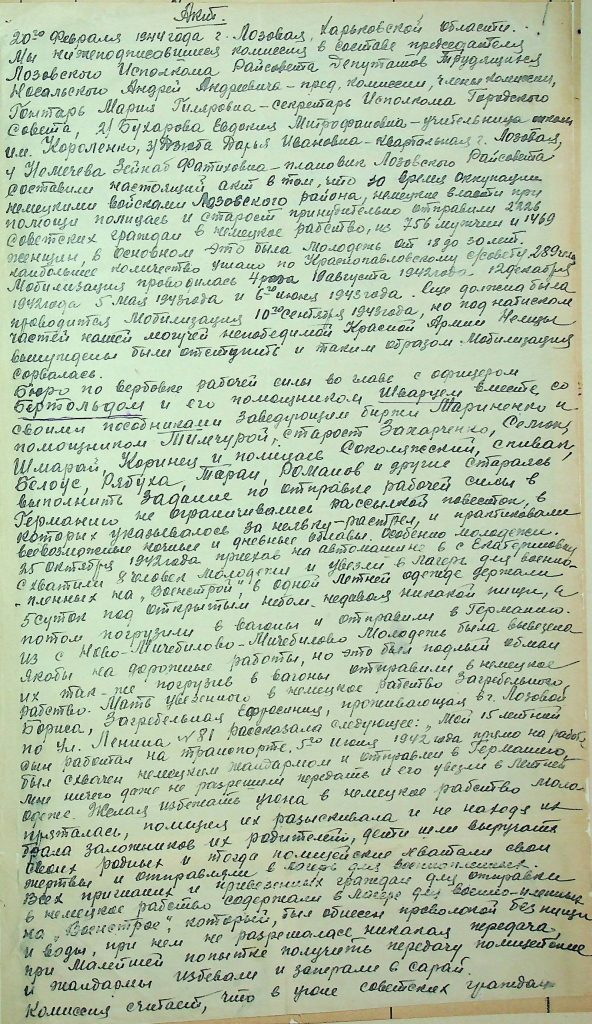 Акт.
20го Февраля 1944 года г. Лозовая, Харьковской области.
Мы нижеподписавшиеся комиссия в составе председателя
Лозовского Исполкома Райсовета Депутатов Трудящихся
Носальского Андрей Андреевича - пред. комиссии, члены комиссии,
Гонтарь Мария Гиляровна - секретарь Исполкома Городского
Совета, 2/ Бухарова Евдокия Митрофановна - учительница школы
им. Короленко, 3/ Дзюба Дарья Ивановна - квартальная г. Лозовая,
4 Немечева Зейнаб Фатиховна - плановик Лозовского Райсовета
составили настоящий акт в том, что во время оккупации
немецкими войсками Лозовского района, немецкие власти при
помощи полицаев и старост принудительно отправили 2226
советских граждан в немецкое рабство, из 756 мужчин и 1469
женщин, в основном это была молодежь от 18 до 30 лет.
наибольшее количество угнано по Краснопавловскому с/совету 289 чел.
Мобилизация проводилась 4 раза 19 августа 1942 года. 12 декабря
1942 года 5 мая 1943 года и 6го июня 1943 года. Еще должна была
проводится мобилизация 10го сентября 1943 года, но под натиском
частей нашей могучей непобедимой Красной Армии Немцы
вынуждены были отступить и таким образом мобилизация
сорвалась.
Бюро по вербовке рабочей силы во главе с офицером
Бертольдом и его помощником Шварцем вместе со
своими пособниками Заведующим биржи Мариненко и
помощником Тимчурой, старост Захарченко,
Шмарай, Коринец и полицаев Сокологский, Спивак,
Белоус, Рябуха, Таран, Романов и другие старались
выполнить задание по отправке рабочей силы в
Германию не ограничивались рассылкой повесток, в
которых указывалось за неявку - расстрел, и практиковали
всевозможные ночные и дневные облавы. Особенно молодежи.
25 октября 1942 года приехав на автомашине в с Екатериновку
схватили 8 человек молодежи и увезли в лагерь для военно-
-пленных на "Военстрой", в одной летней одежде держали
5 суток под открытым небом. недавая никакой пищи, а
потом погрузили в вагоны и отправили в Германию.
Из с Ново-Мичебилово-Мичебилово Молодежь была вывезена
якобы на дорожные работы, но это был подлый обман
их так-же погрузив в вагоны отправили в немецкое
рабство. Мать увезенного в немецкое рабство Загребельного
Бориса, Загребельная Ефросиния, проживающая в г. Лозовой
по Ул. Ленина №81 рассказала следующее: "Мой 15 летний
сын работал на транспорте. 5го июня 1942 года прямо на работе
был схвачен немецким жандармом и отправили в Германию,
мне ничего даже не разрешили передать и его увезли в летней
одеже. Желая избежать угона в немецкое рабство моло-
пряталась, полиция их разыскивала и не находя их
брала заложников их родителей, дети шли выручать
своих родных и тогда полицейские хватали свои
жертвы и отправляли в лагерь для военнопленных.
Всех пригнаних и привезенных граждан для отправки
в немецкое рабство содержали в лагере для военно-пленных
на "Военстрое", который был обнесен проволокой без пищи
и воды, при чем не разрешалась никакая передача,
при малейшей попытке получить передачу полицейские
и жандармы избевали и запирали в сарай.
Комиссия считает, что в угоне советских граждан